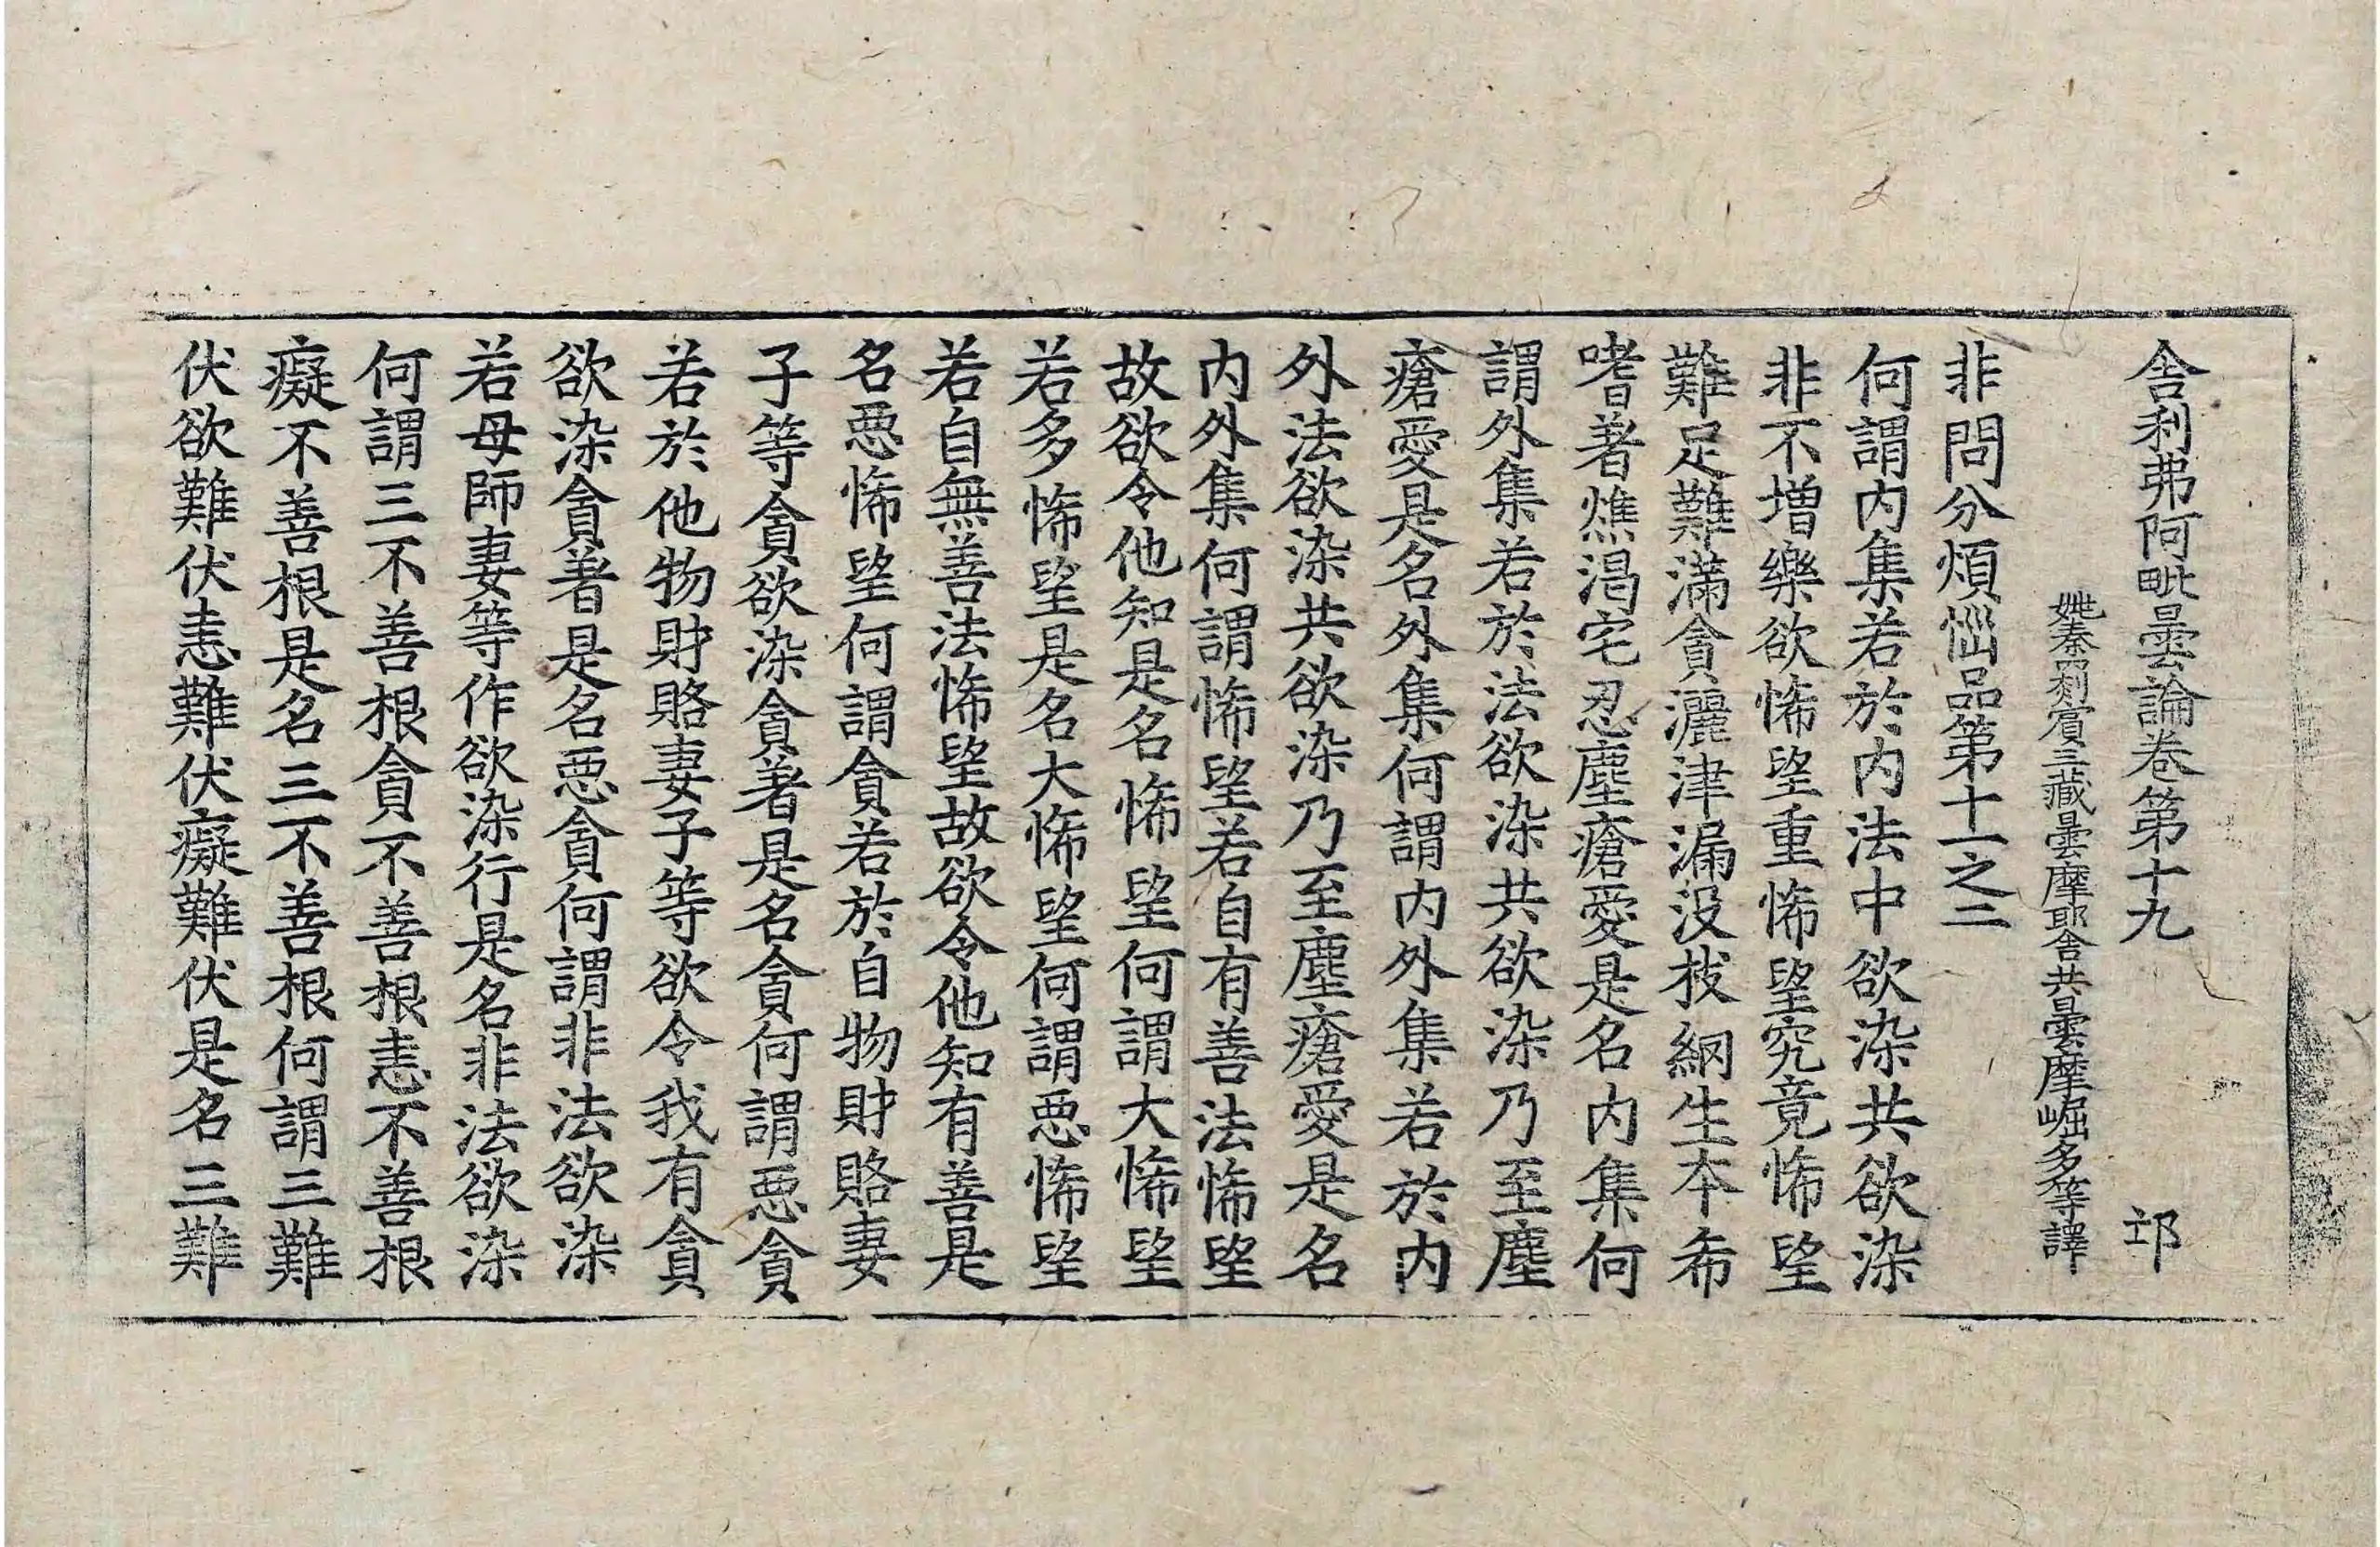 舎利弗阿毗曇論卷第十九 邛
姚秦罽賓三藏曇摩耶舎共曇摩崛多等譯
非問分煩惱品第十一之二
何謂内集若於内法中欲染共欲染
非不增樂欲悕望重悕望究竟悕望
難足難滿貪灑津漏没枝網生本希
嗜著燋渴宅忍塵瘡愛是名内集何
謂外集若於法欲染共欲染乃至塵
瘡愛是名外集何謂内外集若於内
外法欲染共欲染乃至塵瘡愛是名
内外集何謂悕望若自有善法悕望
故欲令他知是名悕望何謂大悕望
若多悕望是名大悕望何謂惡悕望
若自無善法悕望故欲令他知有善是
名惡悕望何謂貪若於自物財賂妻
子等貪欲染貪著是名貪何謂惡貪
若於他物財賂妻子等欲令我有貪
欲染貪著是名惡貪何謂非法欲染
若母師妻等作欲染行是名非法欲染
何謂三不善根貪不善根恚不善根
癡不善根是名三不善根何謂三難
伏欲難伏恚難伏癡難伏是名三難